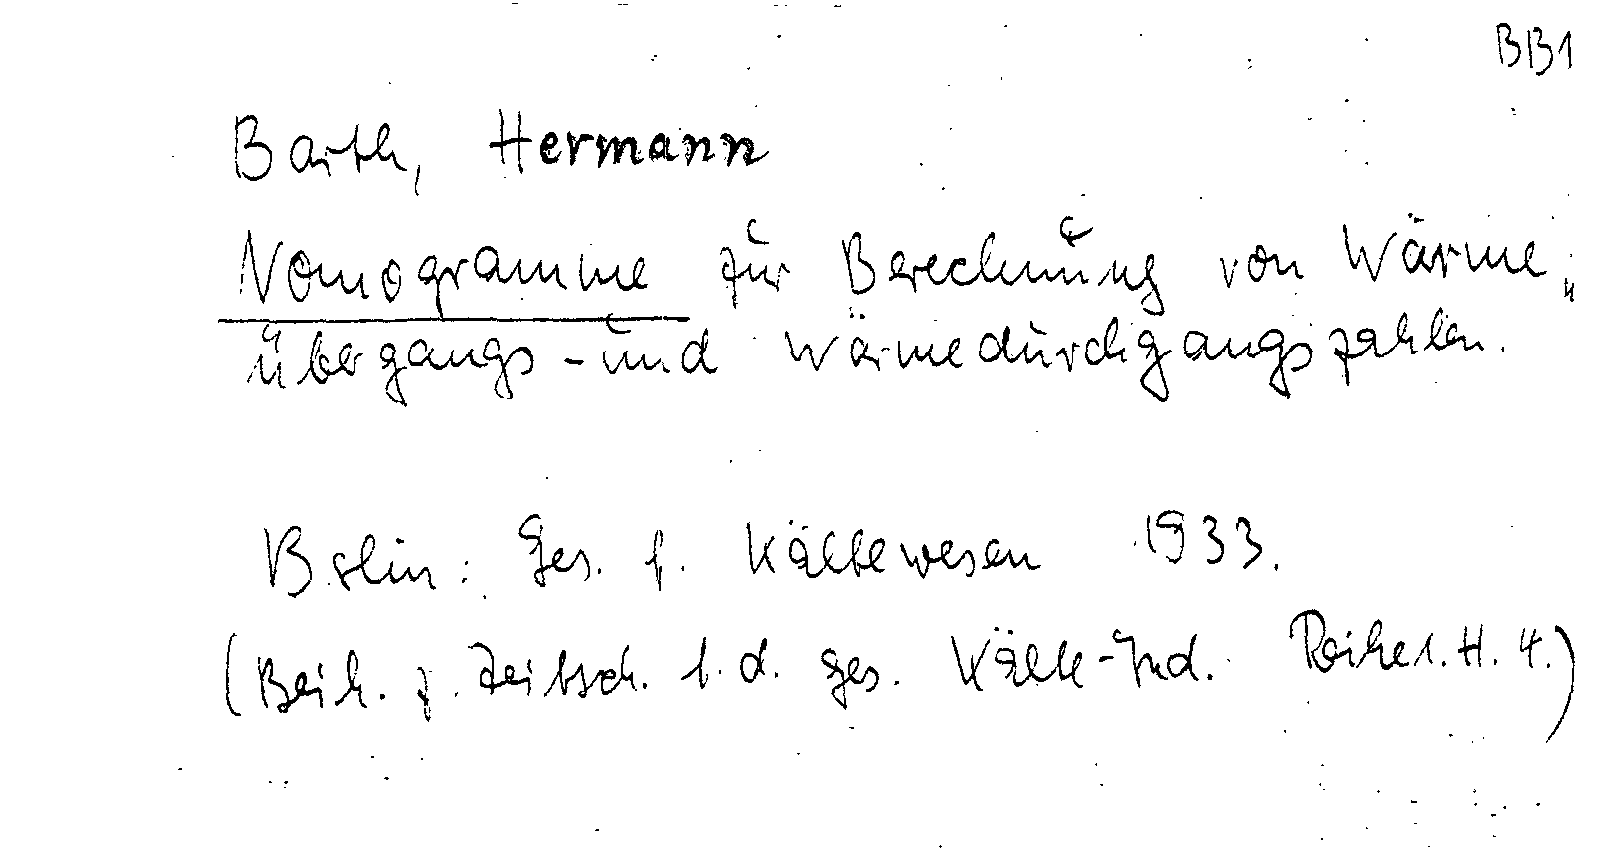 BB1
Barth, Hermann
Nomogramme zur Berechnung von Wärme-
übergangs- und Wärmedurchgangszahlen.
Berlin: Ges. f. Kältewesen 1933.
(Beih. z. Zeitsch. f. d. ges. Kälte-Ind. Reihe 1. H. 4.)